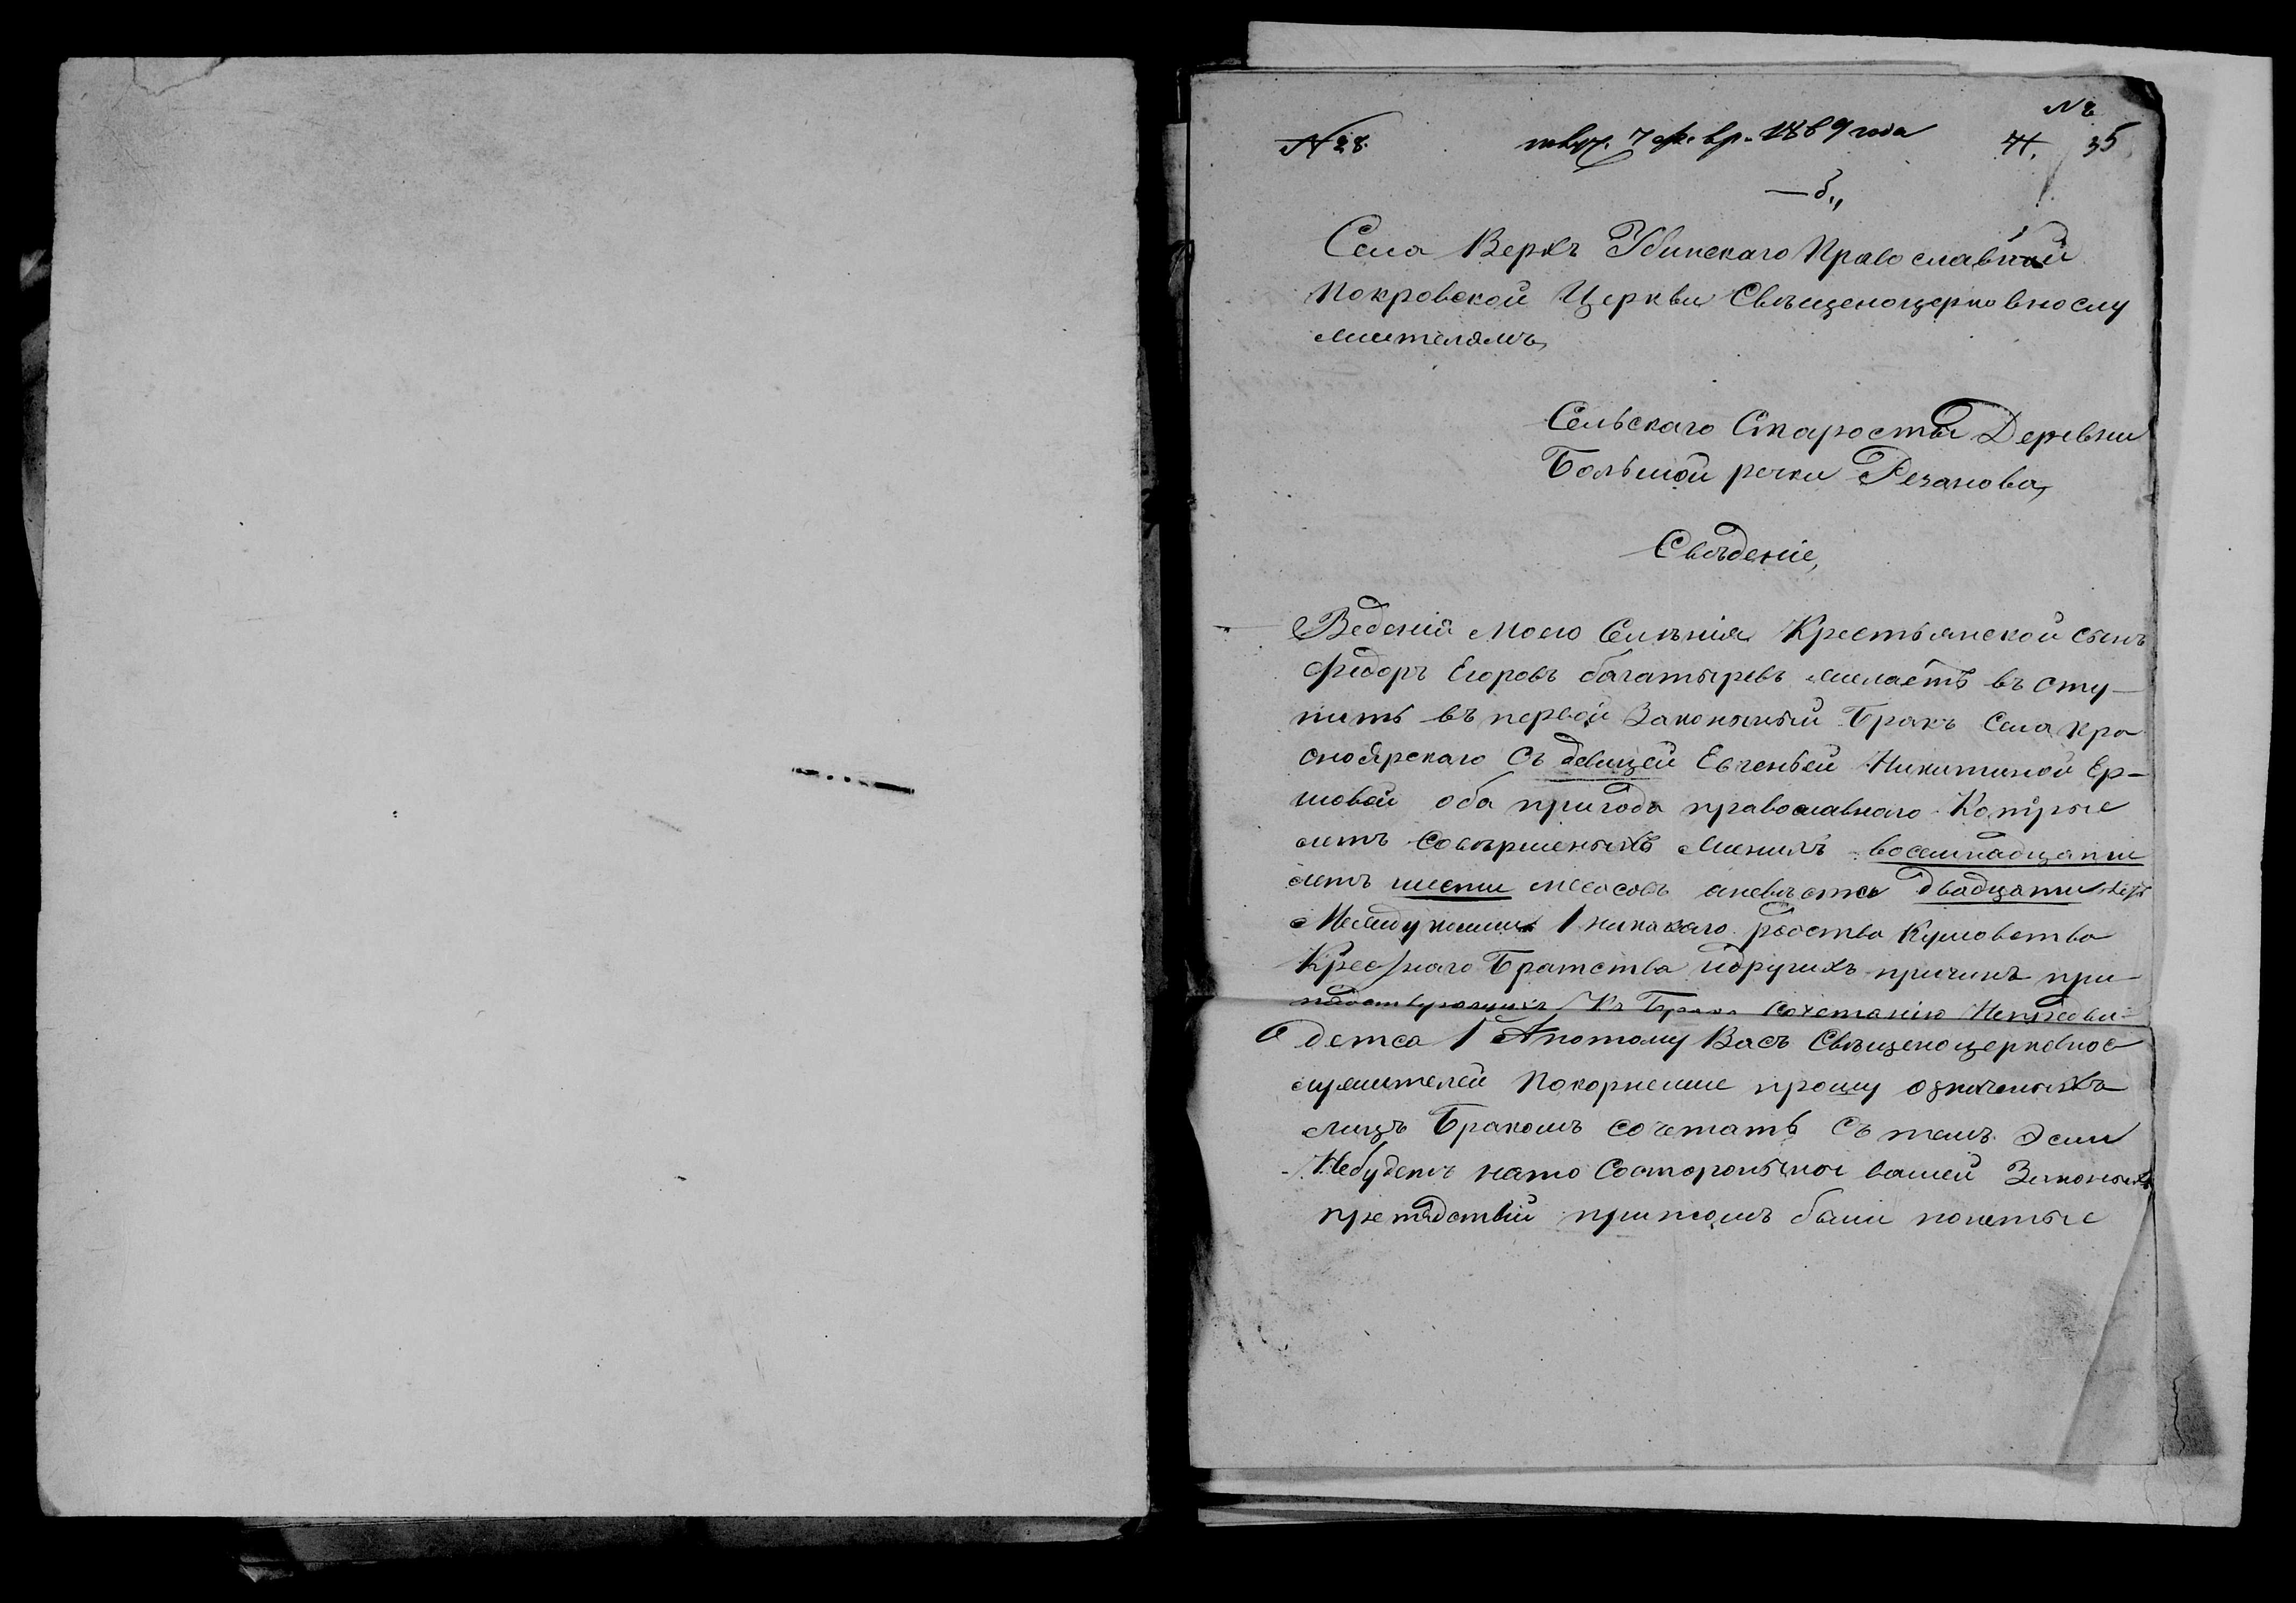 № 28. 7 февр. 1869 года №
35
Села Верхъ Убинскаго Православной
Покровской Церкви Свѣщеноцерковнослу
жителямъ,
Сельскаго Старосты Деревни
Большой речки Резанова,
Сведѣніе,
Ведения Моего Селѣнія Крестьянской сынъ
Федоръ Егоровъ багатыревъ желаетъ въ сту-
пить въ первой Законъный Бракъ Села кра
сноярскаго Съ девицей Евгеньей Никитиной Ер-
шовой оба пригода православнаго Которые
летъ Совѣршеныхъ Женихъ восемнадцати
летъ шести месесовъ аневѣста двадцати летъ
Междукоими никакаго родства Кумовства
Крестнаго Братства идругихъ причинъ при-
пядствующихъ Къ Браку Сочетанію Непредви-
детса Апотому Васъ Свѣщеноцерковнос
служителей Покорнеше прошу означеныхъ
лицъ Бракомъ сочетать Съ темъ Эсли
Небудетъ нато Состороныное вашей Законыхъ
препядствий притомъ были понетые